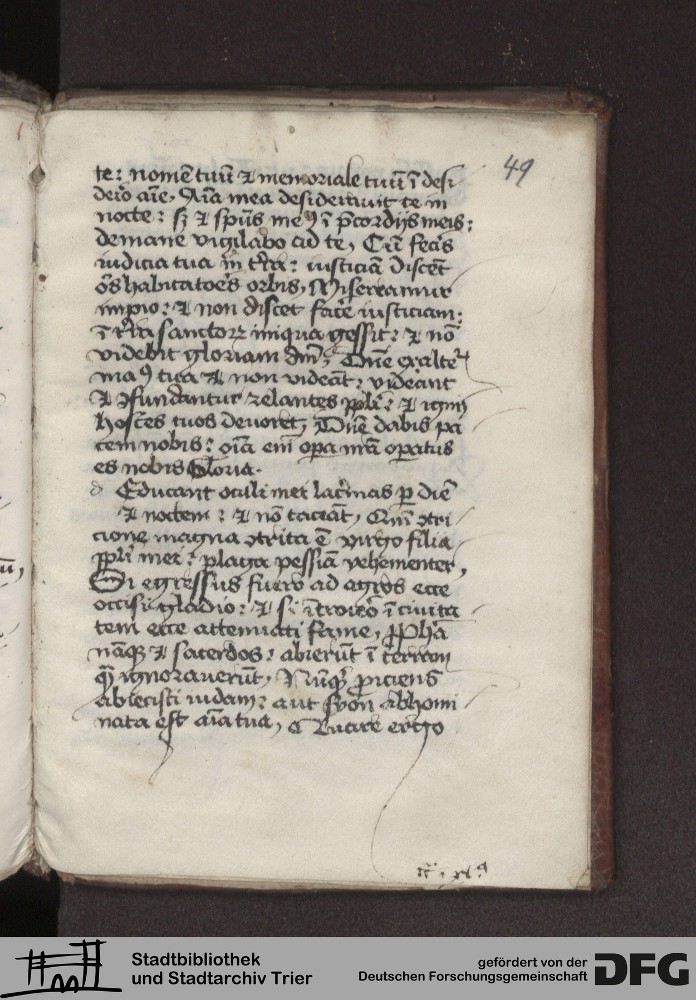 49
te: nomē tuū et memoriale tuū ī desi
derio aīe, Aīa mea desideravit te in
nocte: sꝫ et spūs meꝰ ī p̄cordijs meis:
de mane vigilabo ad te, Cū fecīs
iudicia tua in t̄ra: iusticiā discēt
oēs habitatores orbis, Misereamur
impio: et non discet face iusticiam:
ī t̄ra sanctoꝝ iniqua gessit: et nō
videbit gloriam dnī, Dn̄e exalte
maꝰ tua et non videāt: videant
et ꝯfundantur zelantes ppl̄i: et ignis
hostes tuos devoret, Dn̄e dabis pa
cem nobis: oīa enī opa nr̄a operatus
es nobis Gloria.
Educant oculi mei lacrimas ꝑ diē
et noctem: et nō taceant, Qm̄ ꝯtri
cione magna ꝯtrita ē virgo filia
ppl̄i mei: plaga pessīa vehementer,
Si egressus fuero ad agros ecce
occisi gladio: et si ītroiero ī civita
tem ecce attenuati fame, Ppha
nāqꝫ et sacerdos: abierūt ī terram
quā ignoraverūt, Nūqd ꝓiciens
abiecisti iudam: aut syon abhomi
nata est aīa tua, Quare ergo
Stadtbibliothek
und Stadtarchiv Trier
gefördert von der
Deutschen Forschungsgemeinschaft
DFG